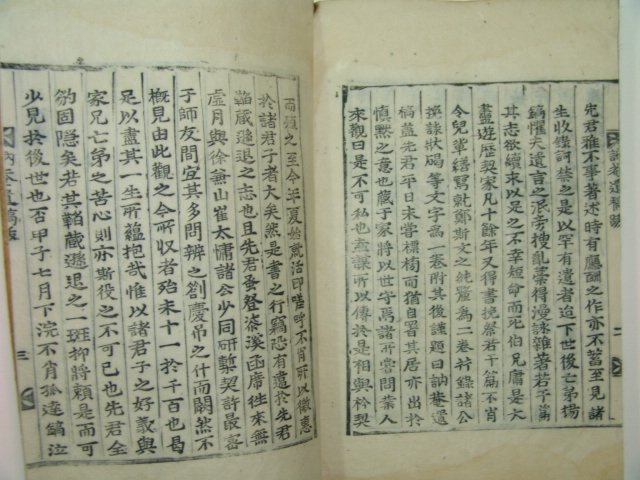 先君雅不事著述時有應酬之作亦不蓄至見諸
生收錄訶禁之是以罕有遺者迨下世後亡弟揚
鎬懼夫遺言之泯旁搜亂藁得漫詠雜著若干篇
其志欲續求以足之不幸短命而死伯兄庸是大
盡遊歷契家凡十餘年又得書挽祭君干篇不肖
令兒掌繕寫就鄭斯文之純釐為二卷行錄諸公
撰誄狀碣等文字為一卷附其後謹題曰訥菴遺
稿盖先君平日未嘗標榜而猶自署其居亦出於
慎黙之意也噫家將以世守焉諸所嘗問業人
來觀曰是不可私也盍謀所以傳於是相與矜契
而殖之至今年夏始就治印嗟呼不肖所以徼惠
於諸君子者大矣然是書之行竊恐有違於先君
韜蔵遜退之志也且先君蚤登溪函席徃來無
虛月與徐無山崔大慵諸公少同研槧契許最審
于師友間宜其多問辨之劄慶吊之什而闕然不
概見由此觀之今所收者殆未十一於千百也曷
足以盡其一生所蘊抱哉惟以諸君子之好義與
家兄亡弟之苦心則亦斯役之不可已也先君全
豹固隱矣若其韜蔵遜退之一斑抑將頼是而可
少見於後世也否甲子七月下浣不肖孤達鎬泣
三